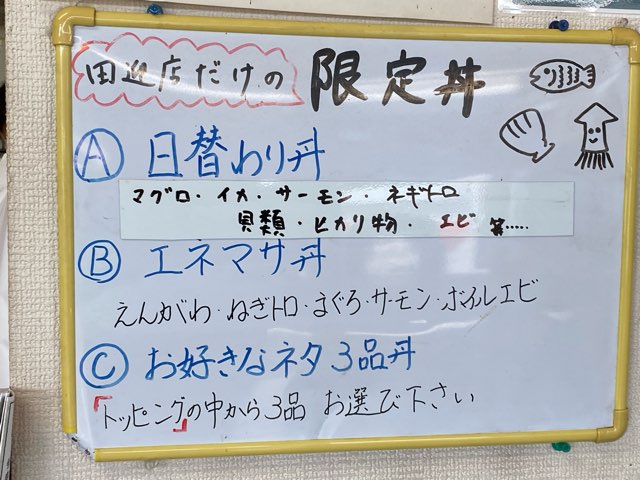 田迎店だけの
限定丼
Ⓐ 日替わり丼
マグロ・イカ・サーモン・ネギトロ
貝類・ヒカリ物・エビ 等.....
Ⓑ エネマサ丼
えんがわ・ねぎトロ・まぐろ・サーモン・ボイルエビ
Ⓒ お好きなネタ3品丼
「トッピング」の中から3品 お選び下さい